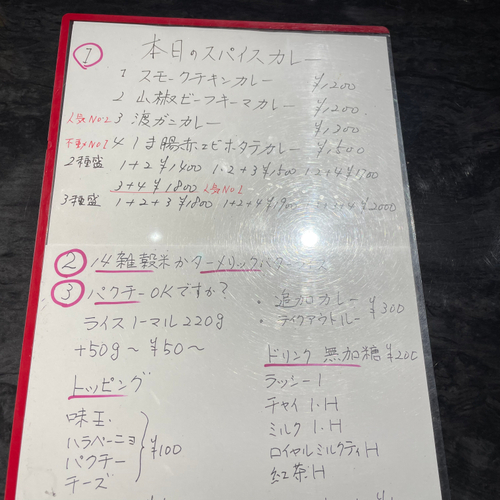 ① 本日のスパイスカレー
1 スモークチキンカレー ¥1,200
2 山椒ビーフキーマカレー ¥1,200
人気No.2 3 渡ガニカレー ¥1,300
不動No.1 4 1ま腸赤エビホタテカレー ¥1,500
2種盛 1+2 ¥1400 1・2+3 ¥1500 1.2+4 ¥1700
3+4 ¥1800 人気No1
3種盛 1+2+3 ¥1800 1+2+4 ¥1900 ¥2000
② 14雑穀米かターメリック
③ パクチーOKですか?
・追加カレー ¥300
・テイクアウトルー
ライスノーマル220g
+50g〜¥50〜
ドリンク 無加糖 ¥200
トッピング
味玉
ハラペーニョ
パクチー
チーズ
¥100
ラッシー I
チャイ I・H
ミルク I・H
ロイヤルミルクティ H
紅茶 H